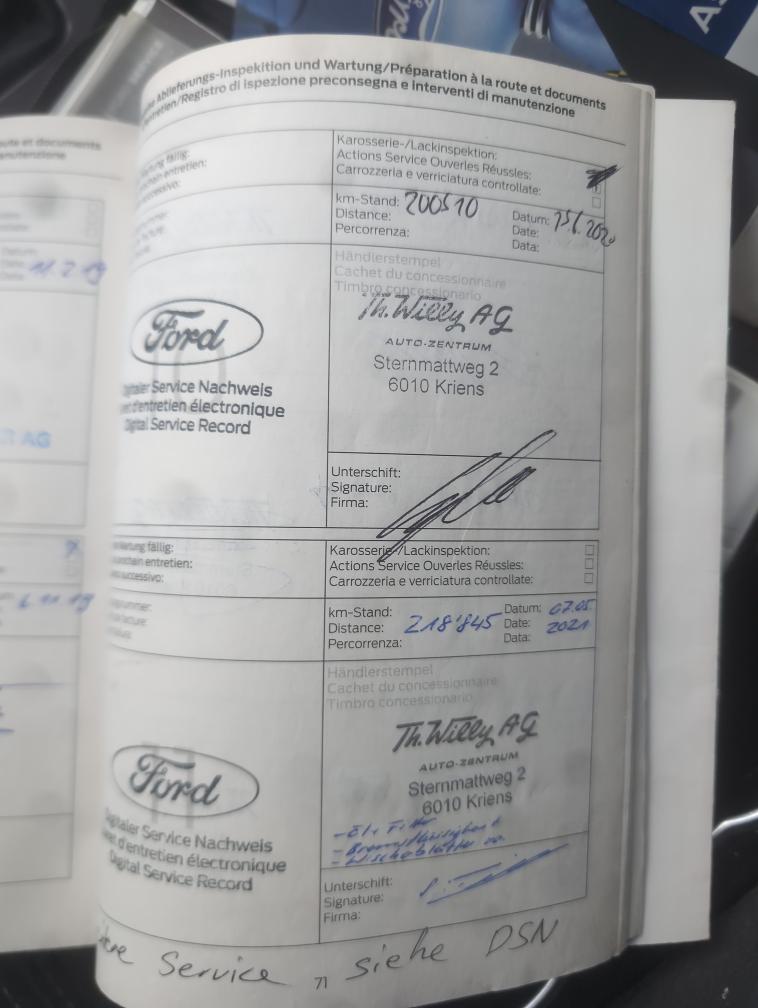 Ablieferungs-Inspekition und Wartung/Préparation à la route et documents
entretien/Registro di ispezione preconsegna e interventi di manutenzione
Karosserie-/Lackinspektion:
Actions Service Ouverles Réussles:
Carrozzeria e verriciatura controllate:
km-Stand: 200510 Datum: 15.6.2020
Distance: Date:
Percorrenza: Data:
Händlerstempel
Cachet du concessionnaire
Timbro concessionario
Ford
Th. Willy AG
AUTO-ZENTRUM
Sternmattweg 2
6010 Kriens
Digitaler Service Nachweis
d'entretien électronique
Digital Service Record
Unterschift:
Signature:
Firma:
Wartung fällig:
prochain entretien:
successivo:
Karosserie-/Lackinspektion:
Actions Service Ouverles Réussles:
Carrozzeria e verriciatura controllate:
km-Stand: Datum: 07.05.
Distance: 218'845 Date: 2021
Percorrenza: Data:
Händlerstempel
Cachet du concessionnaire
Timbro concessionario
Ford
Th. Willy AG
AUTO-ZENTRUM
Sternmattweg 2
6010 Kriens
- Öl + Filter
- Bremsflüssigkeit
- Wischoblätter vo.
Digitaler Service Nachweis
d'entretien électronique
Digital Service Record
Unterschift:
Signature:
Firma:
Service siehe DSN
71
route et documents
manutenzione
Datum:
11.2.19
AG
6.11.19